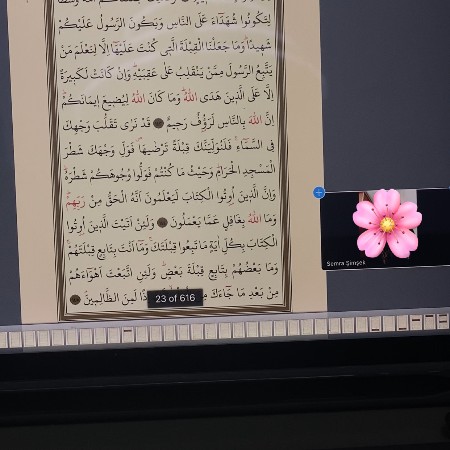 لِتَكُونُوا شُهَدَاءَ عَلَى النَّاسِ وَيَكُونَ الرَّسُولُ عَلَيْكُمْ
شَهِيدًا وَمَا جَعَلْنَا الْقِبْلَةَ الَّتِي كُنْتَ عَلَيْهَا إِلَّا لِنَعْلَمَ مَنْ
يَتَّبِعُ الرَّسُولَ مِمَّنْ يَنْقَلِبُ عَلَى عَقِبَيْهِ وَإِنْ كَانَتْ لَكَبِيرَةً
إِلَّا عَلَى الَّذِينَ هَدَى اللهُ وَمَا كَانَ اللهُ لِيُضِيعَ إِيمَانَكُمْ
إِنَّ اللهَ بِالنَّاسِ لَرَؤُفٌ رَحِيمٌ قَدْ نَرَى تَقَلُّبَ وَجْهِكَ
فِي السَّمَاءِ فَلَنُوَلِّيَنَّكَ قِبْلَةً تَرْضَيهَا فَوَلِّ وَجْهَكَ شَطْرَ
الْمَسْجِدِ الْحَرَامِ وَحَيْثُ مَا كُنْتُمْ فَوَلُّوا وُجُوهَكُمْ شَطْرَهُ
وَإِنَّ الَّذِينَ أُوتُوا الْكِتَابَ لَيَعْلَمُونَ أَنَّهُ الْحَقُّ مِنْ رَبِّهِمْ
وَمَا اللهُ بِغَافِلٍ عَمَّا يَعْمَلُونَ وَلَئِنْ أَتَيْتَ الَّذِينَ أُوتُوا
الْكِتَابَ بِكُلِّ آيَةٍ مَا تَبِعُوا قِبْلَتَكَ وَمَا أَنْتَ بِتَابِعٍ قِبْلَتَهُمْ
وَمَا بَعْضُهُمْ بِتَابِعٍ قِبْلَةَ بَعْضٍ وَلَئِنِ اتَّبَعْتَ أَهْوَاءَهُمْ
مِنْ بَعْدِ مَا جَاءَكَ لَمِنَ الظَّالِمِينَ
23 of 616
Semra Şimşek